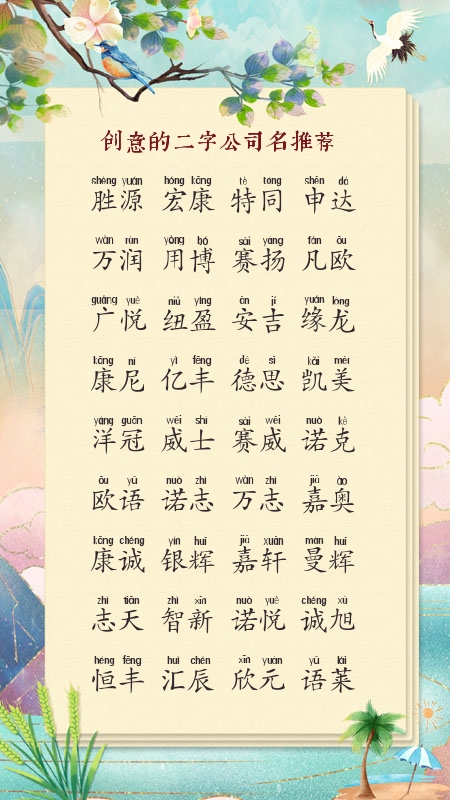 创意的二字公司名推荐
shèng yuán hóng kāng tè tóng shēn dá
胜源 宏康 特同 申达
wàn rùn yòng bó sài yáng fán ōu
万润 用博 赛扬 凡欧
guǎng yuè niǔ yíng ān jí yuán lóng
广悦 纽盈 安吉 缘龙
kāng ní yì fēng dé sī kǎi měi
康尼 亿丰 德思 凯美
yáng guān wēi shì sài wēi nuò kè
洋冠 威士 赛威 诺克
ōu yǔ nuò zhì wàn zhì jiā ào
欧语 诺志 万志 嘉奥
kāng chéng yín huī jiā xuān màn huī
康诚 银辉 嘉轩 曼辉
zhì tiān zhì xīn nuò yuè chéng xù
志天 智新 诺悦 诚旭
héng fēng huì chén xīn yuán yǔ lái
恒丰 汇辰 欣元 语莱